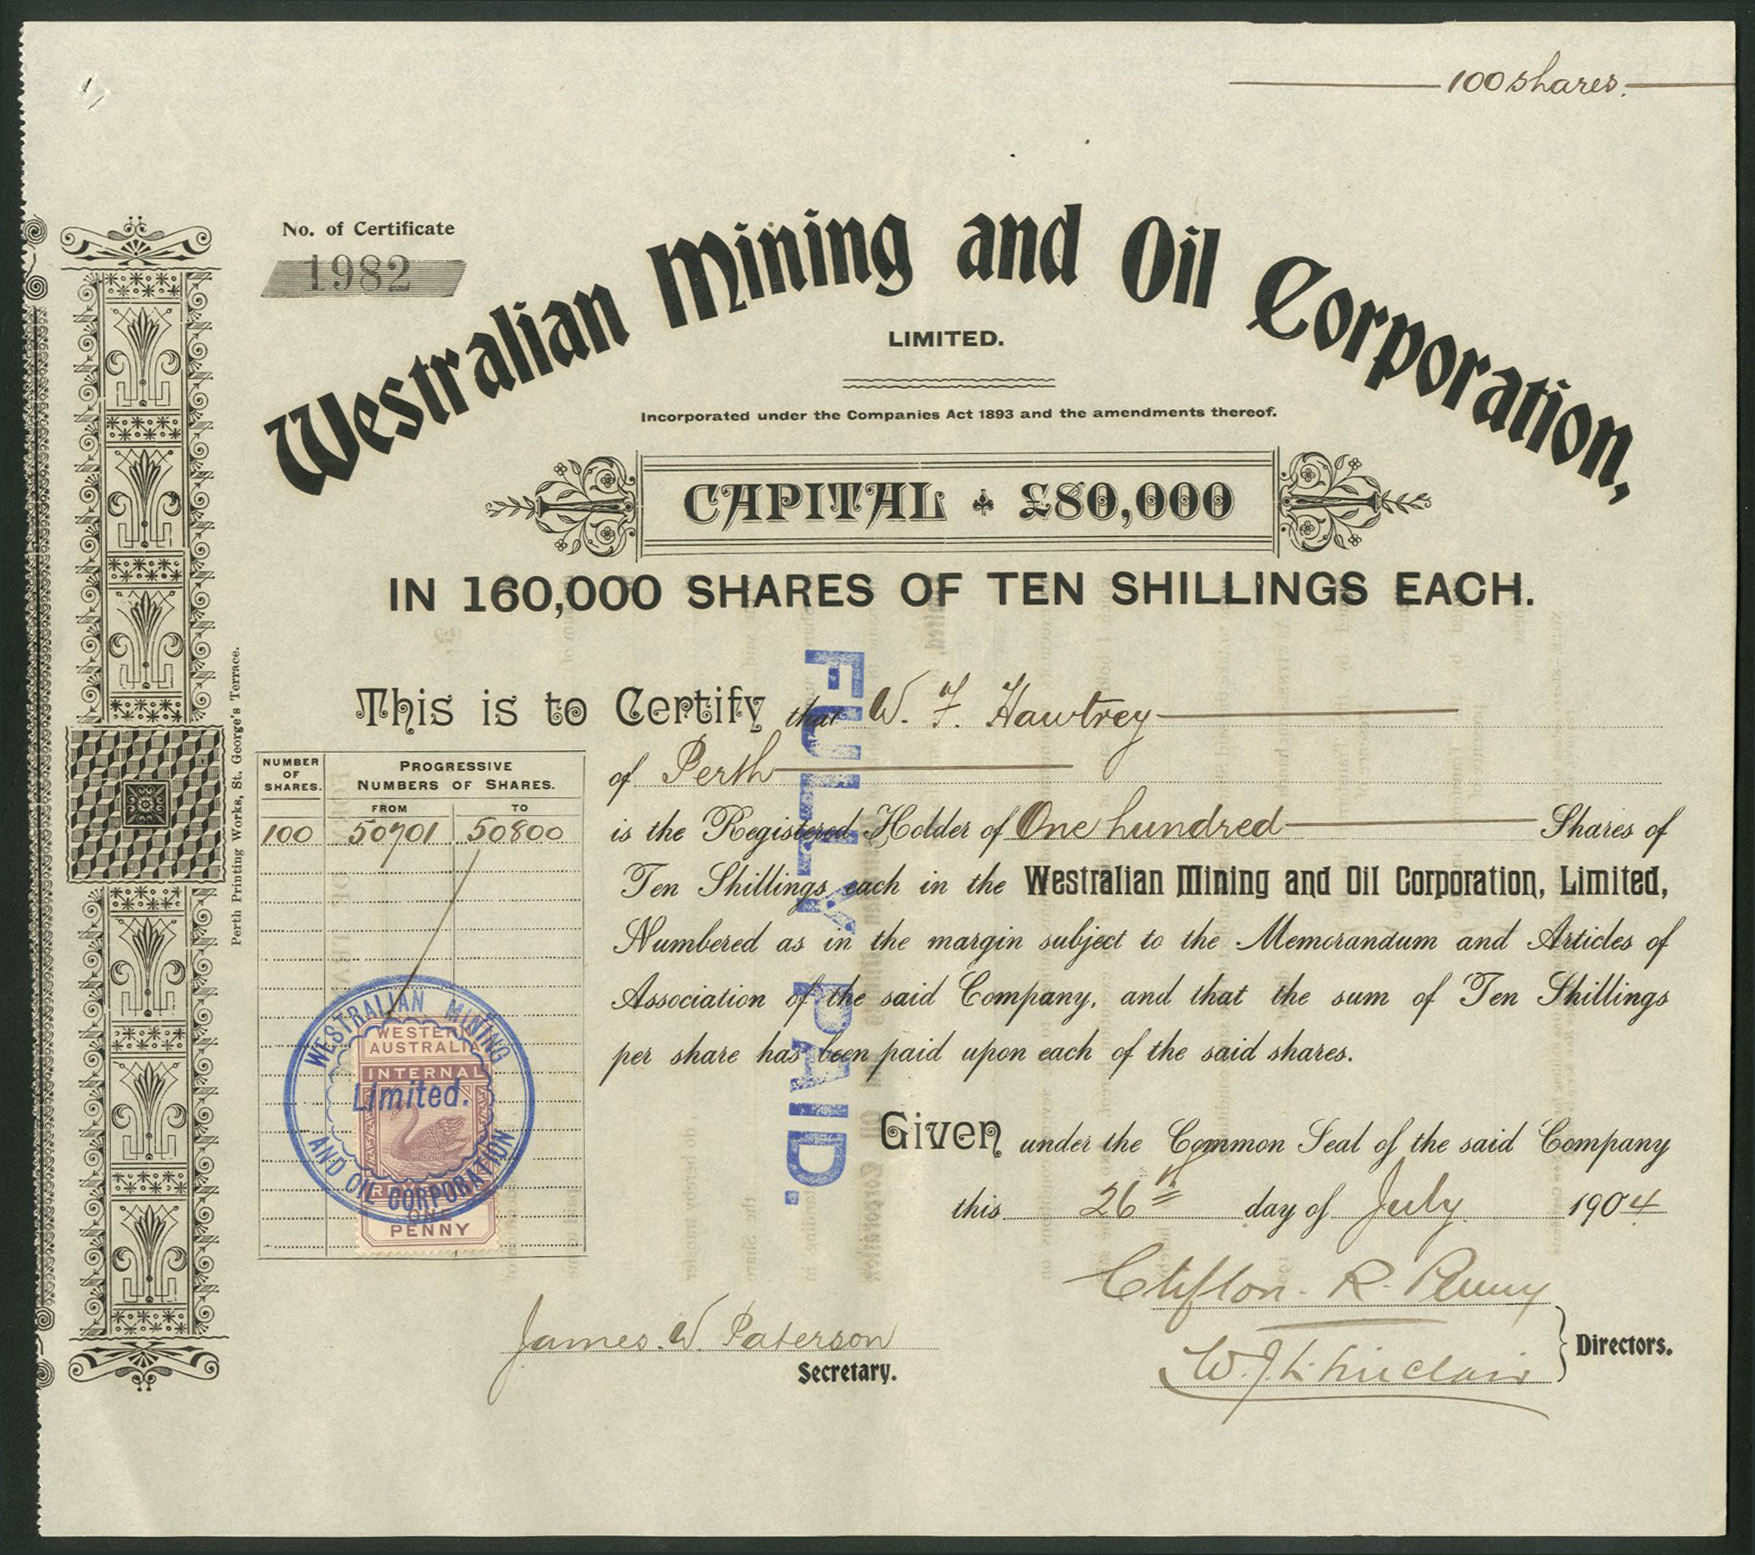 100 shares.
No. of Certificate
1982
Westralian Mining and Oil Corporation,
LIMITED.
Incorporated under the Companies Act 1893 and the amendments thereof.
CAPITAL £80,000
IN 160,000 SHARES OF TEN SHILLINGS EACH.
This is to Certify that W. F. Hawtrey
of Perth
is the Registered Holder of One hundred Shares of
Ten Shillings each in the Westralian Mining and Oil Corporation, Limited,
Numbered as in the margin subject to the Memorandum and Articles of
Association of the said Company, and that the sum of Ten Shillings
per share has been paid upon each of the said shares.
FULLY PAID.
Given under the Common Seal of the said Company
this 26th day of July 1904
NUMBER OF SHARES.
PROGRESSIVE NUMBERS OF SHARES.
FROM TO
100 50701 50800
WESTRALIAN MINING
AND OIL CORPORATION
Limited.
WESTERN
AUSTRALIA
INTERNAL
ONE
PENNY
Clifton. R. Penny
W. J. L. Sinclair
Directors.
James. W. Paterson
Secretary.
Perth Printing Works, St. George's Terrace.